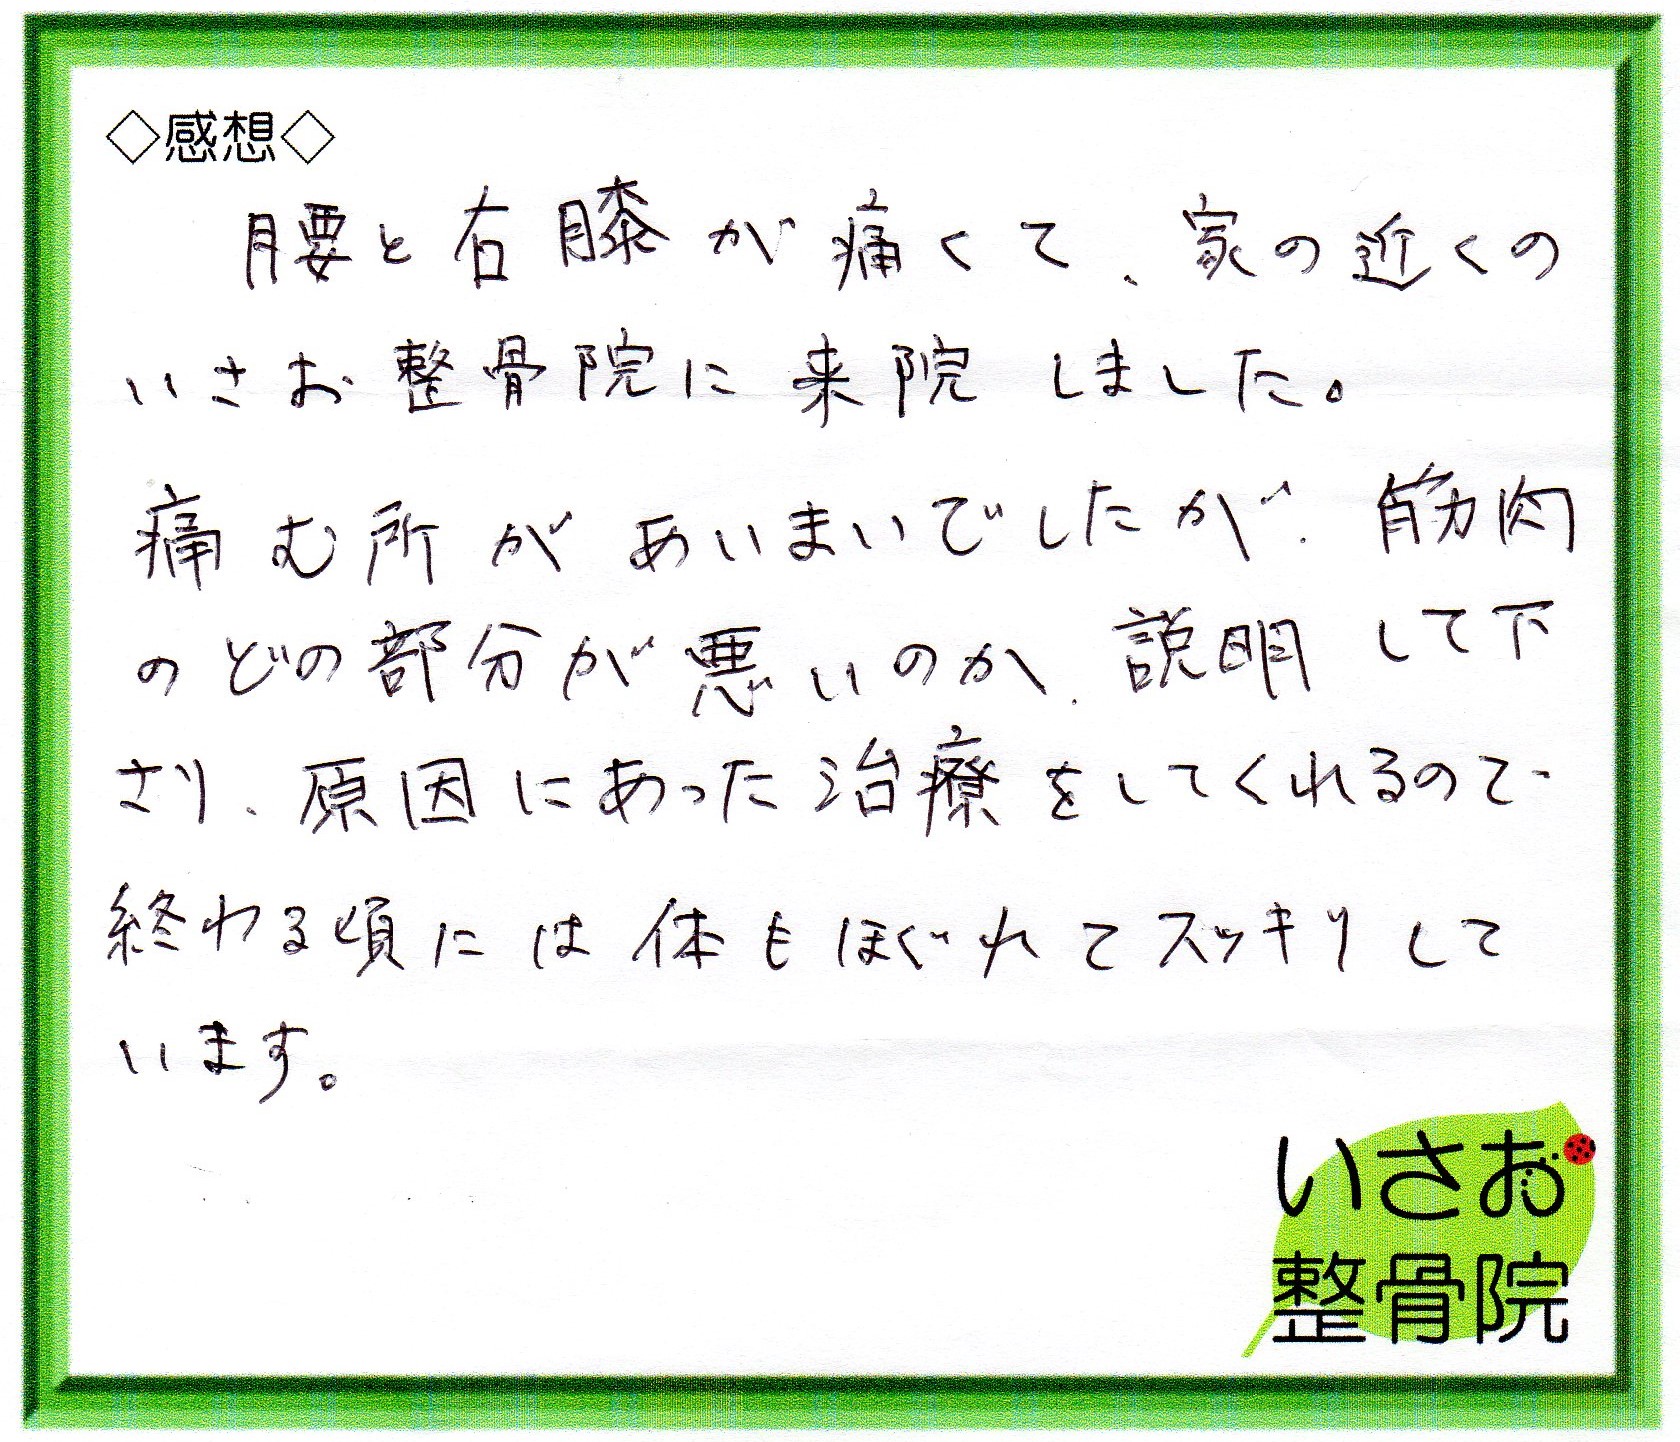 ◇感想◇
腰と右膝が痛くて、家の近くの
いさお整骨院に来院しました。
痛む所があいまいでしたが、筋肉
のどの部分が悪いのか、説明して下
さり、原因にあった治療をしてくれるので
終わる頃には体もほぐれてスッキリして
います。
いさお
整骨院